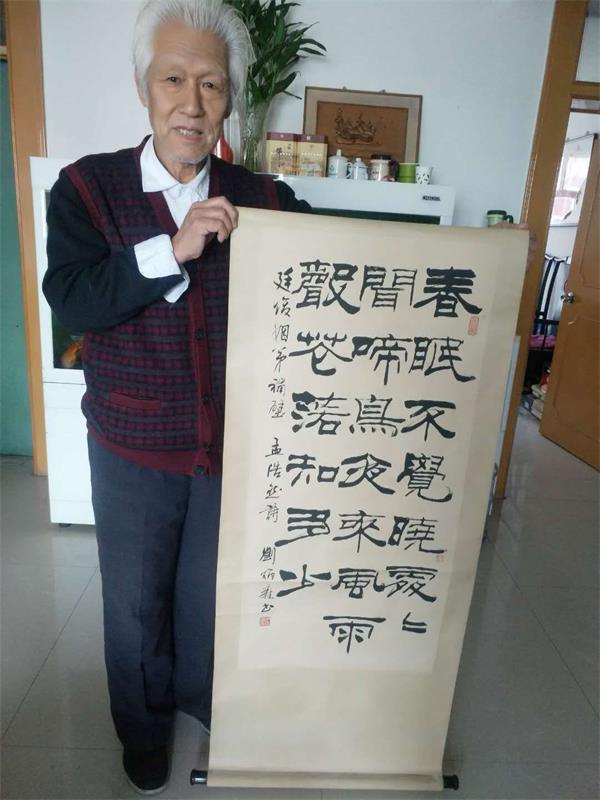 春眠不覺曉處々
聞啼鳥夜來風雨
聲花落知多少
廷俊姻弟補壁 孟浩然詩 劉炳书